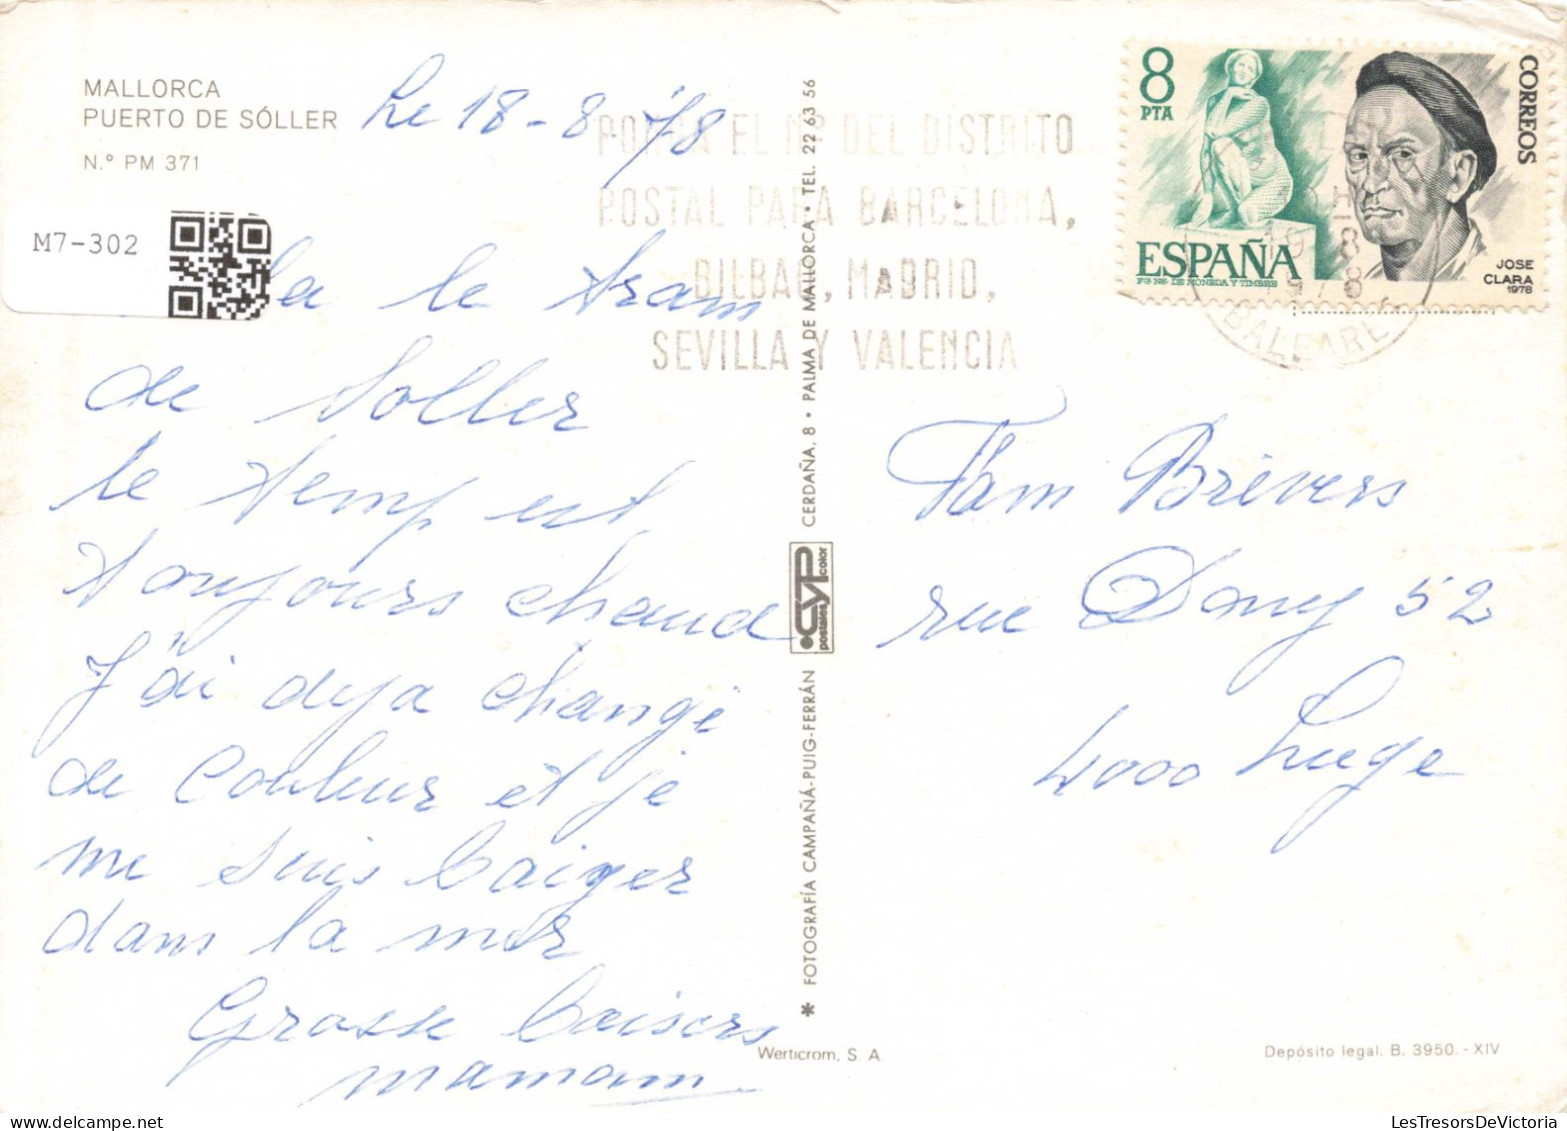 MALLORCA
PUERTO DE SÓLLER
N.º PM 371
Le 18-8-78
M7-302
la le tram
de Soller
le temp est
toujours chaud
J'ai deja changé
de couleur et je
me suis baiger
dans la mer
Grosse baisers
mamam
PONGA EL Nº DEL DISTRITO
POSTAL PARA BARCELONA,
BILBAO, MADRID,
SEVILLA Y VALENCIA
✱ FOTOGRAFÍA CAMPAÑÁ-PUIG-FERRÁN
CYP
postales color
CERDAÑA, 8 • PALMA DE MALLORCA • TEL. 22 63 56
Werticrom, S. A.
8
PTA
CORREOS
ESPAÑA
JOSE
CLARA
1978
F.N. DE MONEDA Y TIMBRE
19 8
1978
BALEARES
Fam Brévers
rue Dony 52
4000 Liege
Depósito legal. B. 3950. - XIV
LesTresorsDeVictoria